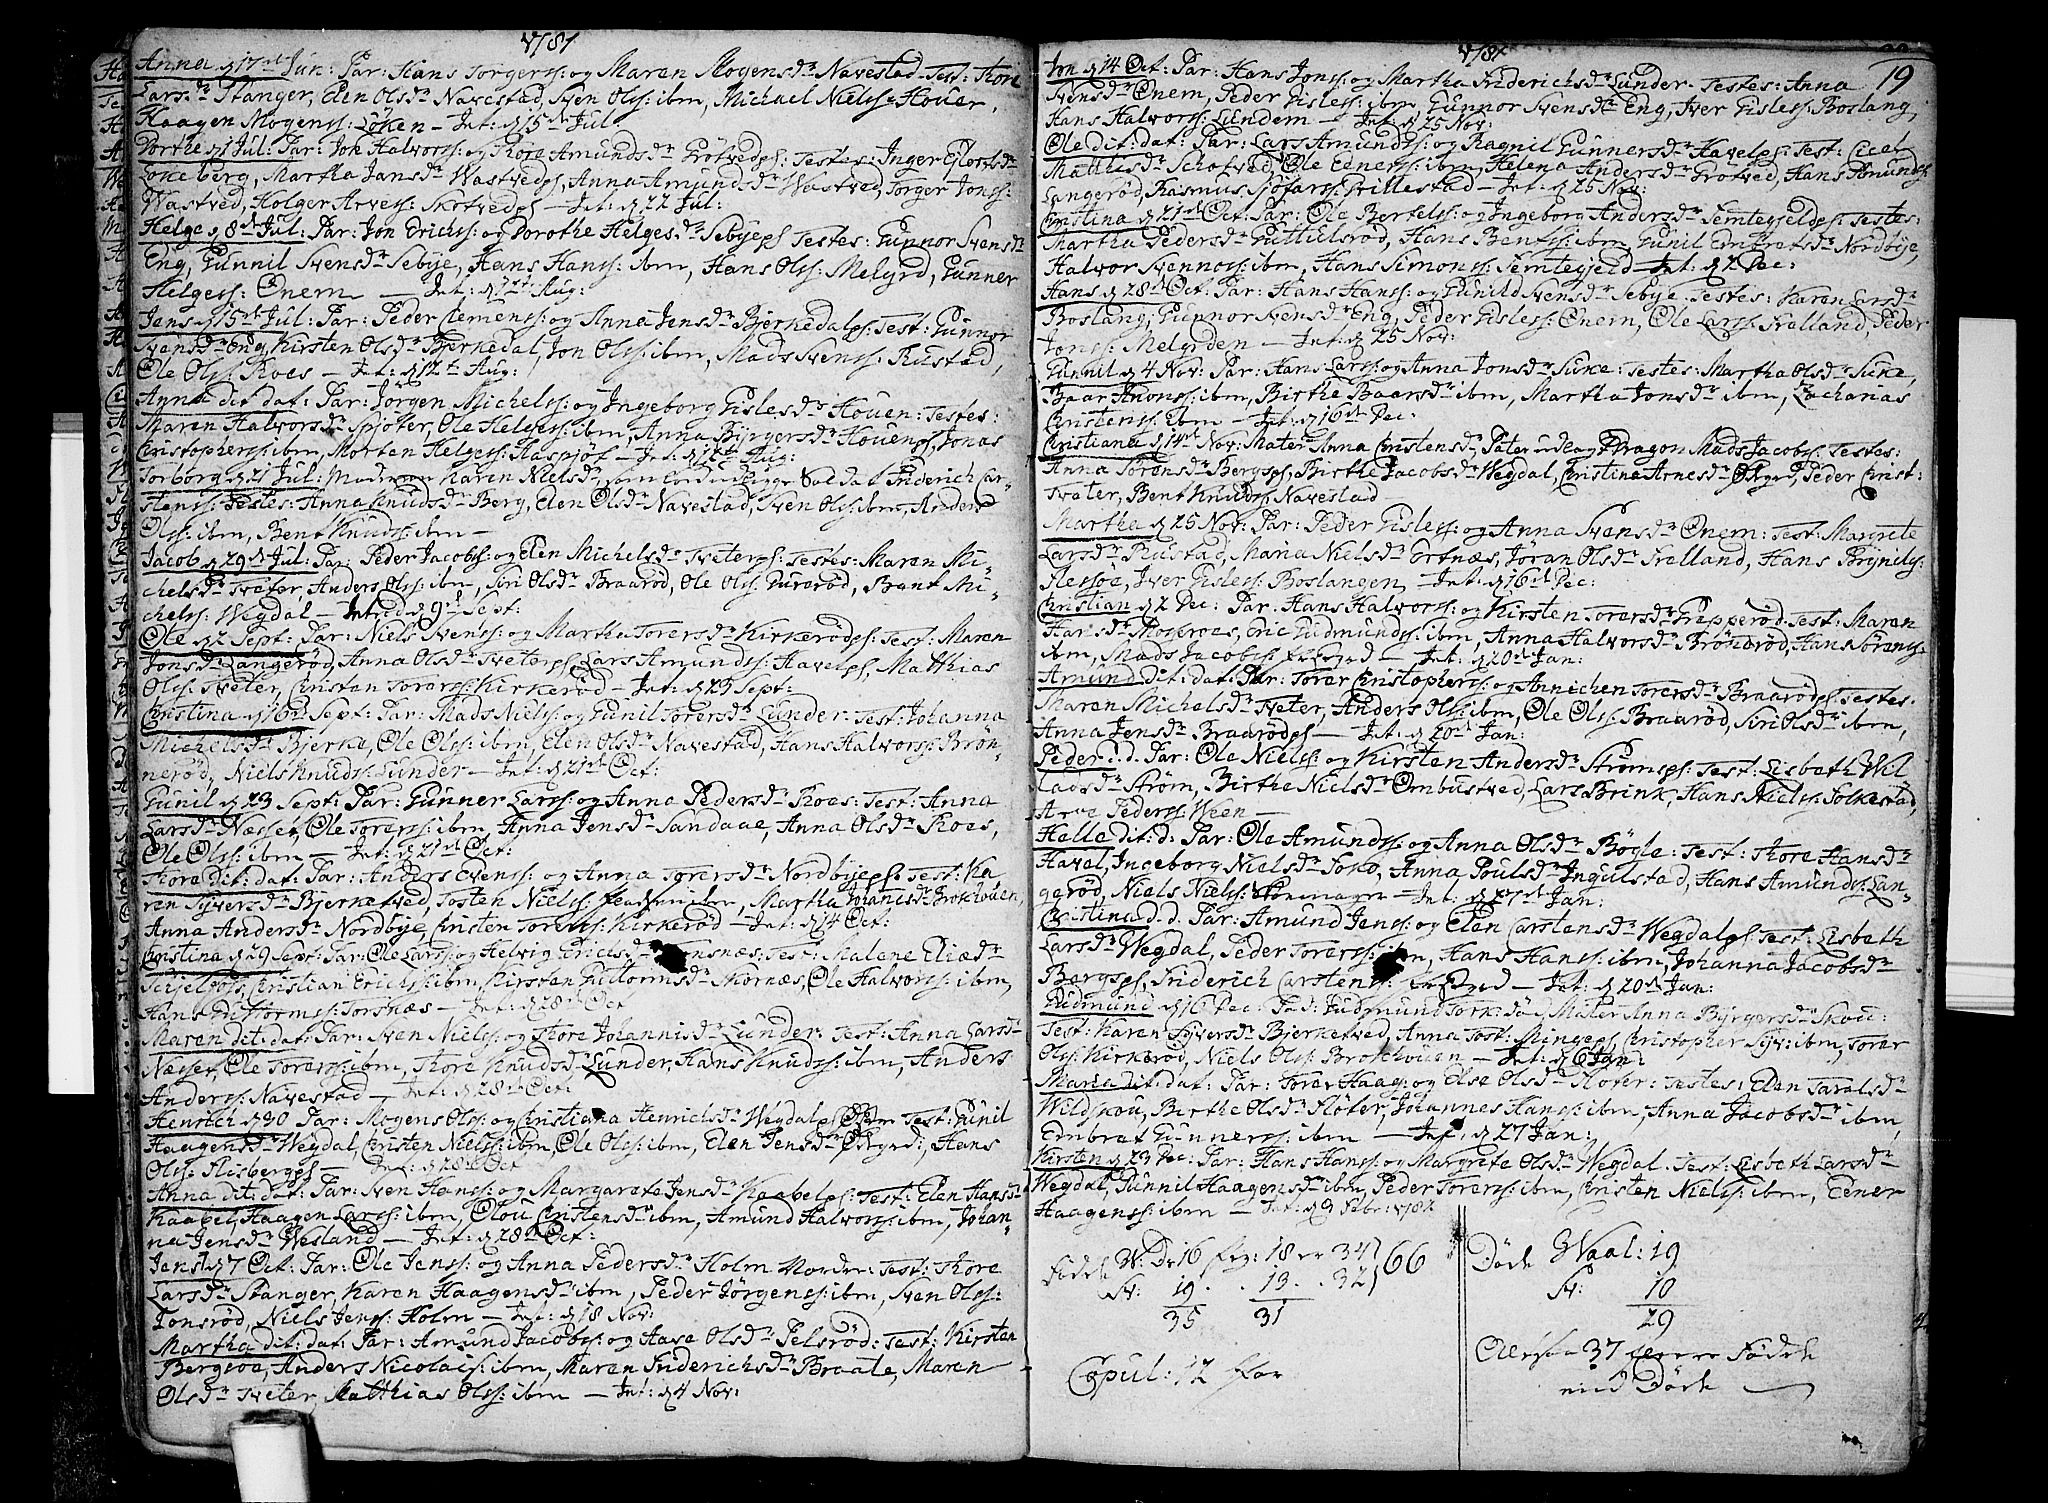 1781
Anna d 17de Jun: Par: Hans Torgerss: og Maren Mogensdr Navestad Test: Thore
Larsdr Stanger, Elen Olsdr Navestad, Sven Olss: ibm, Michael Nielss: Houer,
Haagen Mogenss: Löken – Int: d 15de Jul
Dorthe d 1 Jul: Par: Joh Halvorss: og Thore Amundsdr Grötvedps: Testes: Inger
Lökeberg, Martha Jansdr Wastvedps, Anna Amundsdr Wastved, Torger Jonss:
Wastved, Holger Arvess: Skotvedps – Int: d 22 Jul:
Helge d 8de Jul: Par: Jon Erichss: og Dorothe Helgesdr Sebyeps Testes: Gunnor Svensdr
Eng, Gunnil Svensdr Sebye, Hans Hanss: ibm, Hans Olss: Melgrd, Gunner
Helgess: Önem – Int: d 12te Aug:
Jens d 15de Jul: Par: Peder Clemenss: og Anna Jensdr Bjerkedalps: Test: Gunnor
Svensdr Eng, Kirsten Olsdr Bjerkedal, Jon Olss: ibm, Mads Svenss: Rustad,
Ole Olss: Roes – Int: d 12te Aug:
Anna dit: dat: Par: Jörgen Michelss: og Ingeborg Gislesdr Houen: Testes:
Maren Halvorsdr Spjöter, Ole Helgess: ibm, Anna Byrgersdr Houenps, Jonas
Christopherss: ibm, Morten Helgess: Haspjot – Int: d 12te Aug:
Torborg d 21 Jul: Moderen Karen Nielsdr, Soldat Friderich Car-
stenss: Testes: Anna Knudsdr Berg, Elen Olsdr Navestad, Sven Olss: ibm, Anders
Olss: ibm, Bent Knudss: ibm –
Jacob d 29de Jul: Par: Peder Jacobss: og Elen Michelsdr Tveterps: Testes: Maren Mi-
chelsdr Tveter, Anders Olss: ibm, Siri Olsdr Braarød, Ole Olss: Gurerød, Bent Mi-
chelss: Wegdal – Int: d 9de Sept:
Ole d 2 Sept: Par: Niels Svenss: og Martha Torersdr Kirkerødps: Test: Maren
Jonsdr Langerød, Anna Olsdr Tveterps, Lars Amundss: Havelps, Matthias
Olss: Tveter, Christen Torerss: Kirkerød – Int: d 23 Sept:
Christina d 16de Sept: Par: Mads Nielss: og Gunil Torersdr Lunder: Test: Johanna
Michelsdr Bjerke, Ole Olss: ibm, Elen Olsdr Navestad, Hans Halvorss: Brön-
nerød, Niels Knudss: Lunder – Int: d 21de Oct:
Gunil d 23 Sept: Par: Gunner Larss: og Anna Pedersdr Roes: Test: Anna
Larsdr Næsset, Ole Torerss: ibm, Anna Jensdr Sandaae, Anna Olsdr Roes,
Ole Olss: ibm – Int: d 21de Oct:
Thore dit: dat: Par: Anders Evenss: og Anna Torersdr Nordbyeps: Test: Ka
ren Syversdr Bjerketved, Tosten Nielss: ibm, Martha Johanisdr Brokhouen,
Anna Andersdr Nordbye, Christen Torerss: Kirkerød – Int: d 14 Oct:
Christina d 29 Sept: Par: Ole Larss: og Helvig Erichsdr Torsnæs, Test: Malene Eliædr
Christian Erichss: ibm, Kirsten Guttormsdr Thornæs, Ole Halvorss: ibm,
Hans Guttormss: Torsnæs – Int: d 28de Oct
Maren dit: dat: Par: Sven Nielss: og Thore Johannisdr Lunder. Test: Anna Larsdr
Næsset, Ole Torerss: ibm, Thore Knudsdr Lunder, Hans Knudss: ibm, Anders
Anderss: Navestad – Int: d 28de Oct:
Henrich d 30 Par: Mogens Olss: og Christiana Henrichsdr Wegdalps Test: Gunil
Haagensdr Wegdal, Christen Nielss: ibm, Ole Olss: ibm, Elen Jensdr Østgrd, Hans
Olss: Slisbergps – Int: d 28de Oct
Anna dit: dat: Par: Sven Hanss: og Margareta Jensdr Kaabelps: Test: Elen Hansdr
Kaabel, Haagen Larss: ibm, Olou Christensdr ibm, Amund Halvorss: ibm, Johan-
na Jensdr Wesland – Int: d 28de Oct:
Jens d 7 Oct: Par: Ole Jenss: og Anna Pedersdr Holm Nordre: Test: Thore
Larsdr Stanger, Karen Haagensdr ibm, Peder Jörgenss: ibm, Sven Olss:
Tonsrød, Niels Jenss: Holm – Int: d 18 Nov:
Martha dit: dat: Par: Amund Jacobss: og Aase Olsdr Pelsrød: Test: Kirsten
Bergsøe, Anders Nicolais: ibm, Maren Friderichsdr Braate, Maren
Olsdr Tveter, Matthias Olss: ibm – Int: d 4 Nov:
1781
19
Jon d 14 Oct: Par: Hans Jonss: og Martha Friderichsdr Lunder. Testes: Anna
Svensdr Önem, Peder Gisless: ibm, Gunnor Svensdr Eng, Iver Gisless: Boslang,
Hans Halvorss: Lundem – Int: d 25 Nov:
Ole dit: dat: Par: Lars Amundss: og Ragnil Gunnersdr Havelps: Test: Cecel
Mathisdr Schotved, Ole Ednerss: ibm, Helena Andersdr Grotved, Hans Amundss:
Langerød, Rasmus Sjöfarss: Grillestad – Int: d 25 Nov:
Christina d 21de Oct: Par: Ole Bertelss: og Ingeborg Andersdr Femtegjeldps: Testes:
Martha Pedersdr Guttulsrød, Hans Bentss: ibm, Gunil Embretsdr Nordbye,
Halvor Svennoss: ibm, Hans Simonss: Femtegjeld – Int: d 2 Dec:
Hans d 28de Oct: Par: Hans Hanss: og Gunild Svensdr Sebye. Testes: Karen Larsdr
Boslang, Gunnor Svensdr Eng, Peder Gisless: Önem, Ole Larss: Fralland, Peder
Jonss: Melgrden – Int: d 25 Nov:
Gunnil d 4 Nov: Par: Hans Larss: og Anna Jonsdr Sune: Testes: Martha Olsdr Sune,
Baar Anonss: ibm, Birthe Baarsdr ibm, Martha Jonsdr ibm, Zacharias
Christenss: ibm – Int: d 16de Dec:
Christiana d 14de Nov: Mater Anna Christensdr, Pater Dragon Mads Jacobss: Testes:
Anna Sørensdr Bergsps, Birthe Jacobsdr Wegdal, Christina Arnesdr Østgrd, Peder Christ:
Tveter, Bent Knudss: Navestad –
Martha d 25 Nov: Par: Peder Gisless: og Anna Svensdr Önem: Test: Margrete
Larsdr Rustad, Maria Nielsdr Ortnæs, Jöran Olsdr Fralland, Hans Brynilss:
Flessøe, Iver Gisless: Boslangen – Int: d 16de Dec:
Christian d 2 Dec: Par: Hans Halvorss: og Kirsten Torersdr Grepperød: Test: Maren
Hansdr Moskroes, Eric Gudmundss: ibm, Anna Halvorsdr Brönerød, Hans Sörenss:
ibm, Mads Jacobss: – Int: d 20de Jan:
Amund dit: dat: Par: Torer Christopherss: og Annichen Torersdr Braarødps: Testes:
Maren Michelsdr Tveter, Anders Olss: ibm, Ole Olss: Braarød, Siri Olsdr ibm,
Anna Jensdr Braarødps – Int: d 20de Jan:
Peder d: d. Par: Ole Nielss: og Kirsten Andersdr Strømsps: Test: Lisbeth Wil
ladsdr Strøm, Birthe Nielsdr Ombustved, Lars Brink, Hans Nielss: Folkestad,
Arve Pederss: Ween –
Helle dit: d: Par: Ole Amundss: og Anna Olsdr Bøgle: Test: Thore Hansdr
Havel, Ingeborg Nielsdr Soko, Anna Poulsdr Ingulstad, Hans Amundss: Lan-
gerød, Niels Nielss: Skomager – Int: d 27de Jan:
Christina d. d. Par: Amund Jenss: og Elen Carstensdr Wegdalps: Test: Lisbeth
Larsdr Wegdal, Peder Torerss: ibm, Hans Hanss: ibm, Johanna Jacobsdr
Bergsps, Friderich Carstenss: – Int: d 20de Jan:
Gudmund d 16 Dec: Pad: Gudmund Tork: Dø, Mater Anna Byrgersdr Skou:
Test: Karen Syversdr Bjerketved, Anna Tost: Mingeps, Christopher Syv: ibm, Torer
Olss: Kirkerød, Niels Olss: Brokhouen – Int: d 6 Jan:
Maria dit: dat: Par: Torer Haag: og Else Olsdr Sløter: Testes: Elen Taralsdr
Wildskou, Birthe Olsdr Sløter, Johannes Hanss: ibm, Anna Jacobsdr ibm,
Embret Gunnerss: ibm – Int: d 27 Jan:
Kirsten d 23 Dec: Par: Hans Hanss: og Margrete Olsdr Wegdal. Test: Lisbeth Larsdr
Wegdal, Gunnil Haagensdr ibm, Peder Torerss: ibm, Christen Nielss: ibm, Edner
Haagenss: ibm – Int: d 9 Febr: 1782
Fødde 16 18 er 34 66
19 . . 13 . . 32
35 31
Copul: 12 Par
Døde Maal: 19
10
29
Altsaa 37 flere Fødde
end Døde